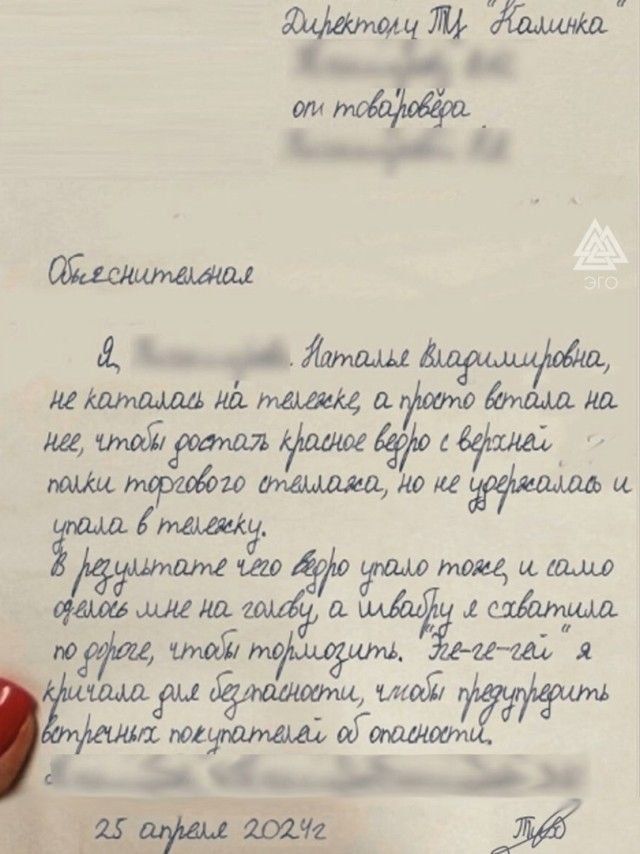 Директору ТЦ "Калинка"
от товароведа
ЭГО
Объяснительная
Я, Наталья Владимировна,
не каталась на тележке, а просто встала на
нее, чтобы достать красное ведро с верхней
полки торгового стеллажа, но не удержалась и
упала в тележку.
В результате чего ведро упало тоже, и само
оделось мне на голову, а швабру я схватила
по дороге, чтобы тормозить. "Эге-ге-гей" я
кричала для безопасности, чтобы предупредить
встречных покупателей об опасности.
25 апреля 2024г